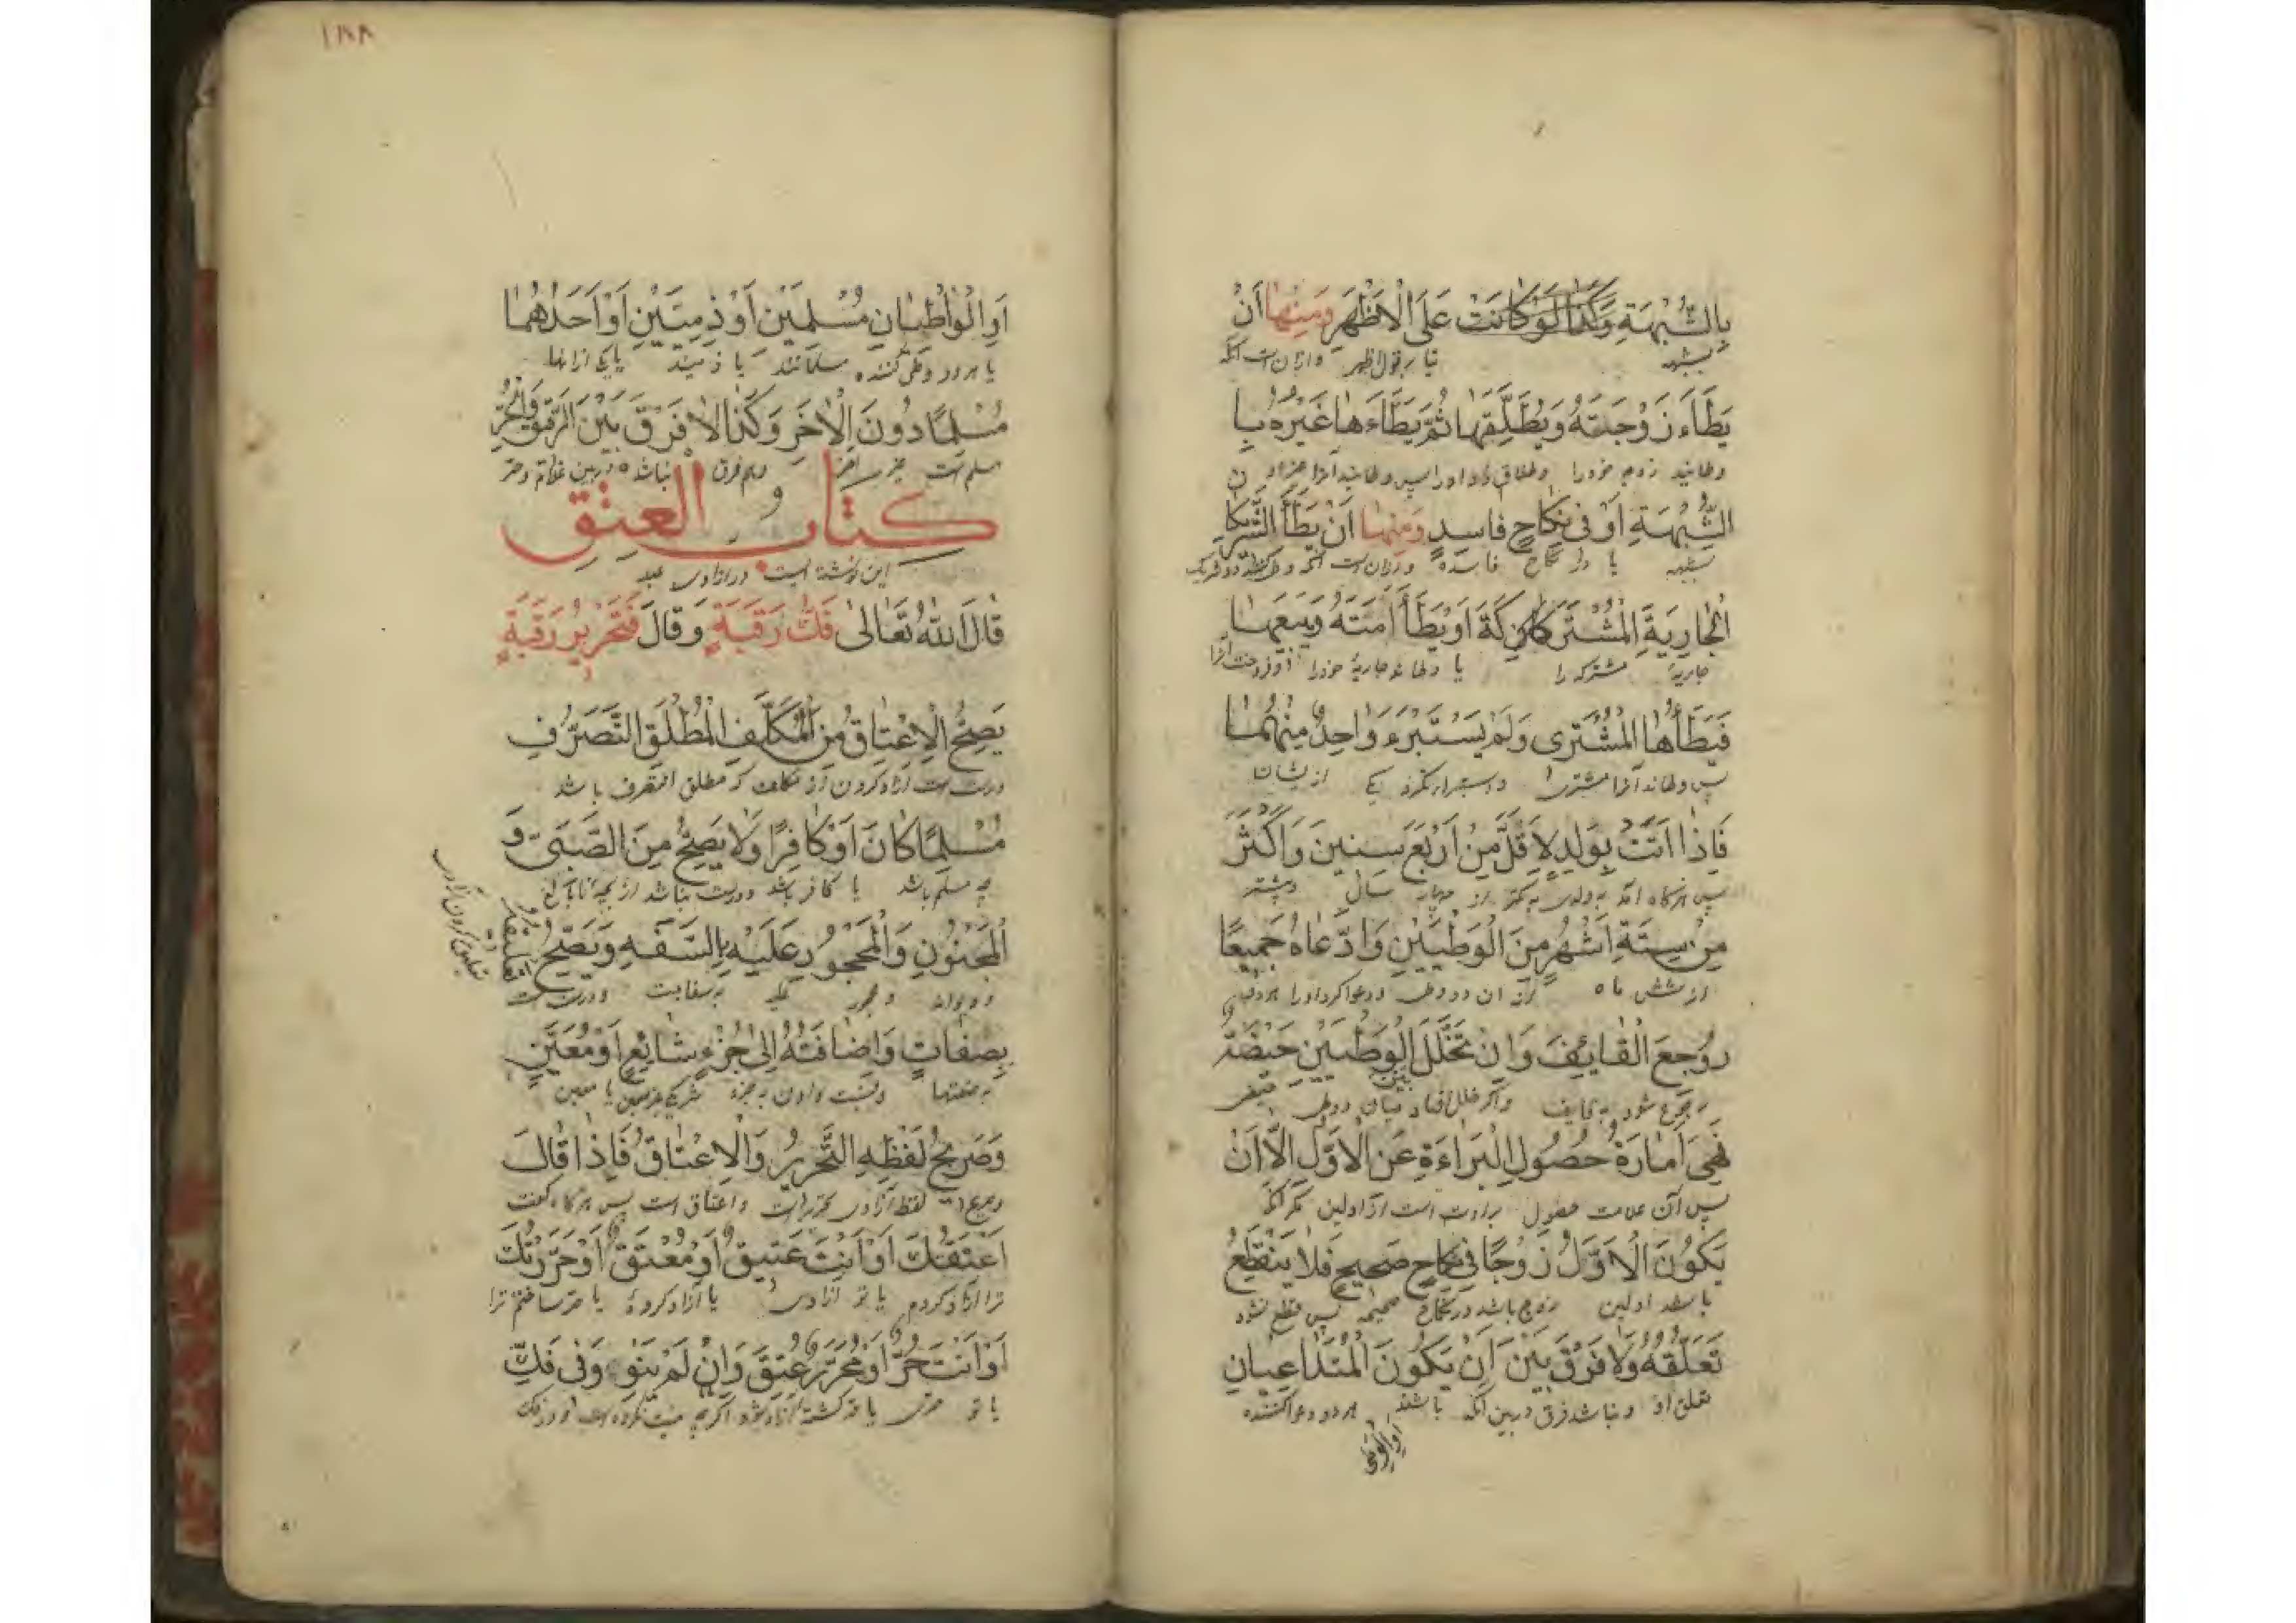 بِالشُّبْهَةِ وَكَذَا لَوْ كَانَتْ عَلَى الْاَظْهَرِ وَمِنْهَا اَنْ
بشبهه برقول اظهر وازان است آنکه
يَطَاَءَ زَوْجَتَهُ وَيُطَلِّقَهَا ثُمَّ يَطَاَءَهَا غَيْرُهُ بِا
زوجه خودرا وطلاق داد اورا پس
الشُّبْهَةِ اَوْ فِى نِكَاحٍ فَاسِدٍ وَمِنْهَا اَنْ يَطَأَ الشَّرِيكَا
بشبهه یا در نکاح فاسده وازان است آنکه
الْجَارِيَةَ الْمُشْتَرَكَةَ اَوْ يَطَأَ اَمَتَهُ وَيَبِيعَهَا
جاریهٔ مشترکه را یا جاریهٔ خودرا
فَيَطَأُهَا الْمُشْتَرِى وَلَمْ يَسْتَبْرِءْ وَاحِدٌ مِنْهُمَا
پس آنرا مشتری یکی ازیشان
فَاِذَا اَتَتْ بِوَلَدٍ لِاَقَلَّ مِنْ اَرْبَعِ سِنِينَ وَاَكْثَرَ
پس هرگاه آمد به ولدی به کمتر از چهار سال
مِنْ سِتَّةِ اَشْهُرٍ مِنَ الْوَطْيَيْنِ وَادَّعَاهُ جَمِيعًا
از شش ماه ازان دو وطی ودعوا کرد اورا
رُوجِعَ الْقَائِفُ وَاِنْ تَخَلَّلَ بَيْنَ الْوَطْيَيْنِ حَيْضَةٌ
رجوع شود به قایف واگر خلل افتاد میان دو وطی حیض
فَهِىَ اَمَارَةُ حُصُولِ الْبَرَاءَةِ عَنِ الْاَوَّلِ اِلَّا اَنْ
پس آن علامت حصول براءت است از اولین مگر آنکه
يَكُونَ الْاَوَّلُ زَوْجًا فِى نِكَاحٍ صَحِيحٍ فَلَا يَنْقَطِعُ
باشد اولین زوج باشد در نکاح صحیحه پس قطع نشود
تَعَلُّقُهُ وَلَا فَرْقَ بَيْنَ اَنْ يَكُونَ الْمُتَدَاعِيَانِ
تعلق او ونباشد فرق در بین آنکه باشند هر دو دعوا کننده
١٨٨
اَوِ الْوَاطِيَانِ مُسْلِمَيْنِ اَوْ ذِمِّيَّيْنِ اَوْ اَحَدُهُمَا
یا هر دو وطی کننده مسلمانند یا ذمیند یا یکی ازانها
مُسْلِمًا دُونَ الْاٰخَرِ وَكَذَا لَا فَرْقَ بَيْنَ الرَّقِيقِ وَالْحُرِّ
مسلم است وهم فرق نباشد در بین غلام وحر
كتاب العتق
این نوشته است در ازادی عبد
قَالَ اللهُ تَعَالىٰ فَكُّ رَقَبَةٍ وَقَالَ فَتَحْرِيرُ رَقَبَةٍ
يَصِحُّ الْاِعْتَاقُ مِنَ الْمُكَلَّفِ الْمُطْلَقِ التَّصَرُّفِ
درست است ازاد کردن از مکلف که مطلق التصرف باشد
مُسْلِمًا كَانَ اَوْ كَافِرًا وَلَا يَصِحُّ مِنَ الصَّبِىِّ وَ
چه مسلم باشد یا کافر باشد ودرست نباشد از بچه نابالغ
الْمَجْنُونِ وَالْمَحْجُورِ عَلَيْهِ بِالسَّفَهِ وَيَصِحُّ تَعْلِيقُهُ
ودیوانه ومحجور علیه به سفاهت ودرست است
بِصِفَاتٍ وَاِضَافَتُهُ اِلىٰ جُزْءٍ شَائِعٍ اَوْ مُعَيَّنٍ
به صفتها ونسبت دادن به جزء یا معین
وَصَرِيحُ لَفْظِهِ التَّحْرِيرُ وَالْاِعْتَاقُ فَاِذَا قَالَ
وصریح لفظ آزادی تحریر است واعتاق است پس هرگاه گفت
اَعْتَقْتُكَ اَوْ اَنْتَ عَتِيقٌ اَوْ مُعْتَقٌ اَوْ حَرَّرْتُكَ
ترا آزاد کردم یا تو آزادی یا آزاد کردهٔ یا حر ساختم ترا
اَوْ اَنْتَ حُرٌّ اَوْ مُحَرَّرٌ عُتِقَ وَاِنْ لَمْ يَنْوِ وَفِى فَكِّ
یا تو حری یا حر کشته آزاد شود اگرچه نیت نکرده است ودر فک